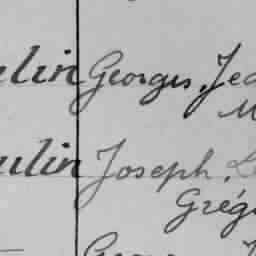 ulin Georges, Jea
M
ulin Joseph, Le
Grég